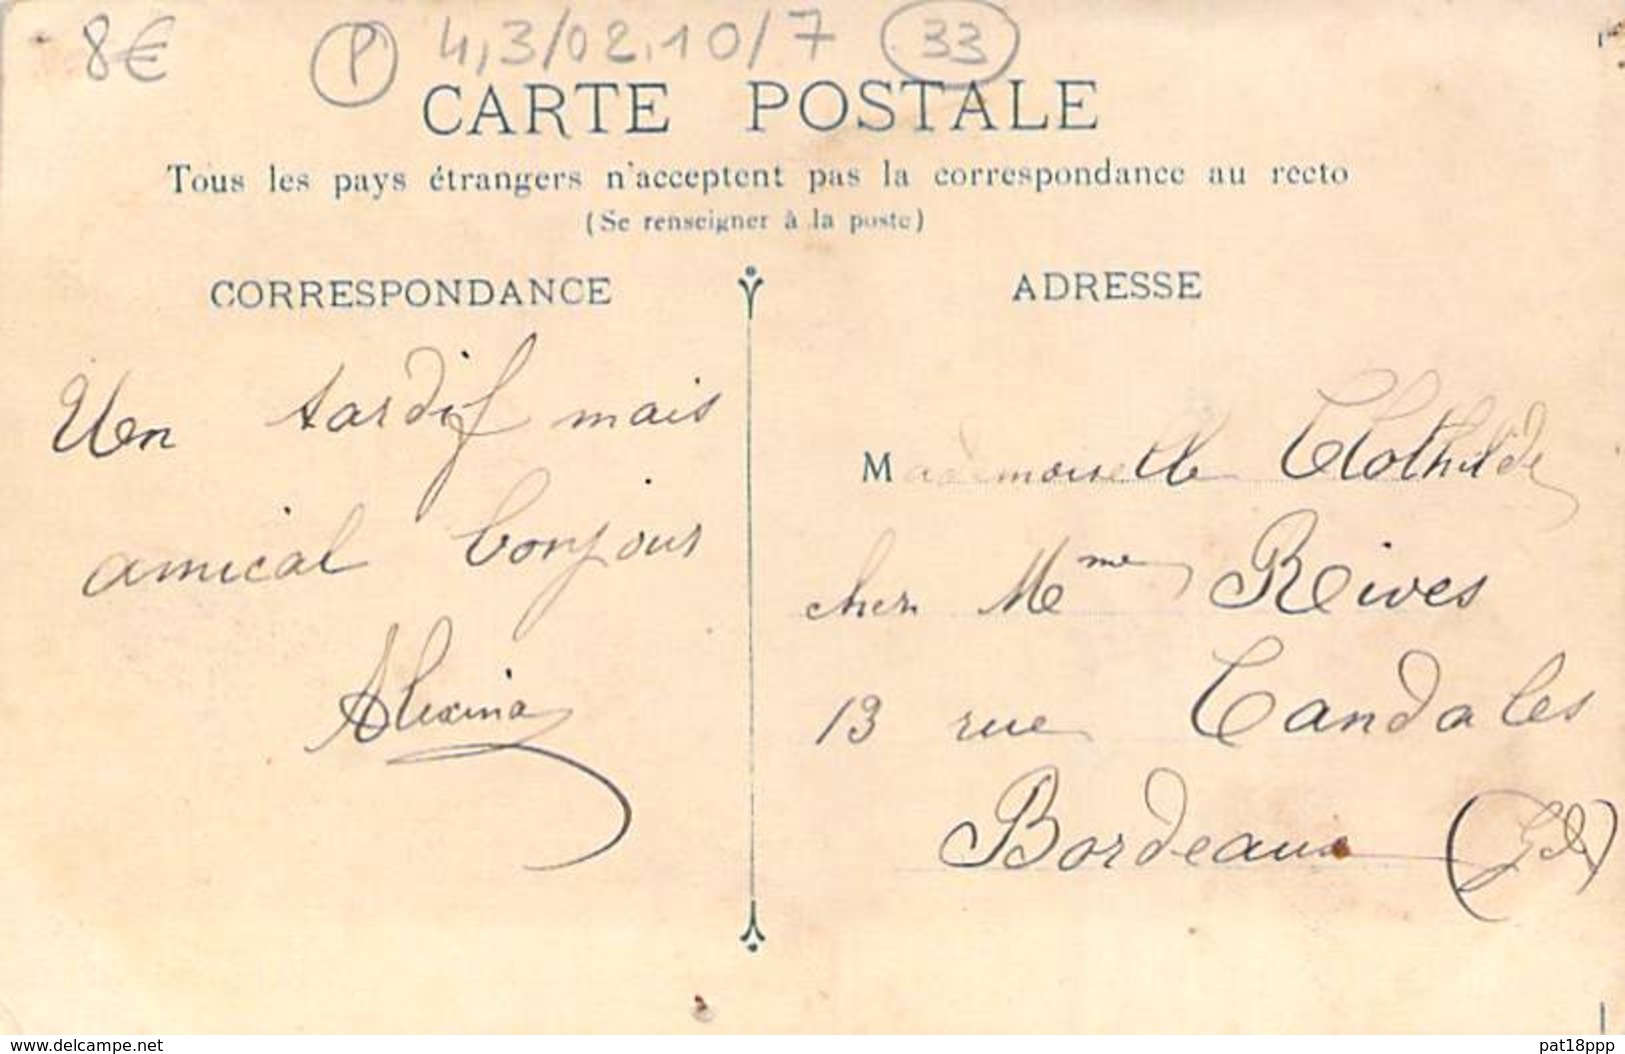 8€ P 4,3/02.10/7 33
CARTE POSTALE
Tous les pays étrangers n'acceptent pas la correspondance au recto
(Se renseigner à la poste)
CORRESPONDANCE
Un tardif mais
amical bonjour
Alexina
ADRESSE
Mademoiselle Clothilde
chez Mme Reives
13 rue Candales
Bordeaux (Gde)
www.delcampe.net
pat18ppp